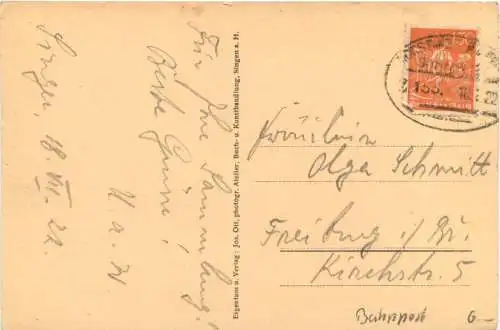 Singen, 18. VII. 22.
Für Ihre Sammlung!
Beste Grüsse!
U. a. W.
Eigentum u. Verlag: Jos. Ott, photogr. Atelier, Buch- u. Kunsthandlung, Singen a. H.
Fräulein
Olga Schmitt
Freiburg i/Br.
Kirchstr. 5
Bahnpost 6.—